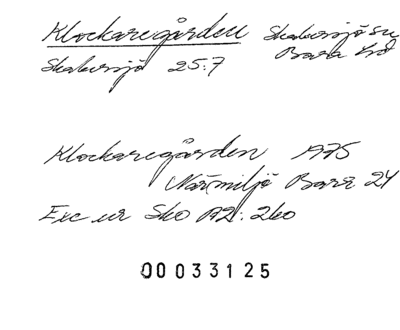 Klockaregården Skabersjö sn
Skabersjö 25:7 Bara hd
Klockaregården 1975
Närmiljö Bara 24
Exc ur Sko A2: 260
0033125